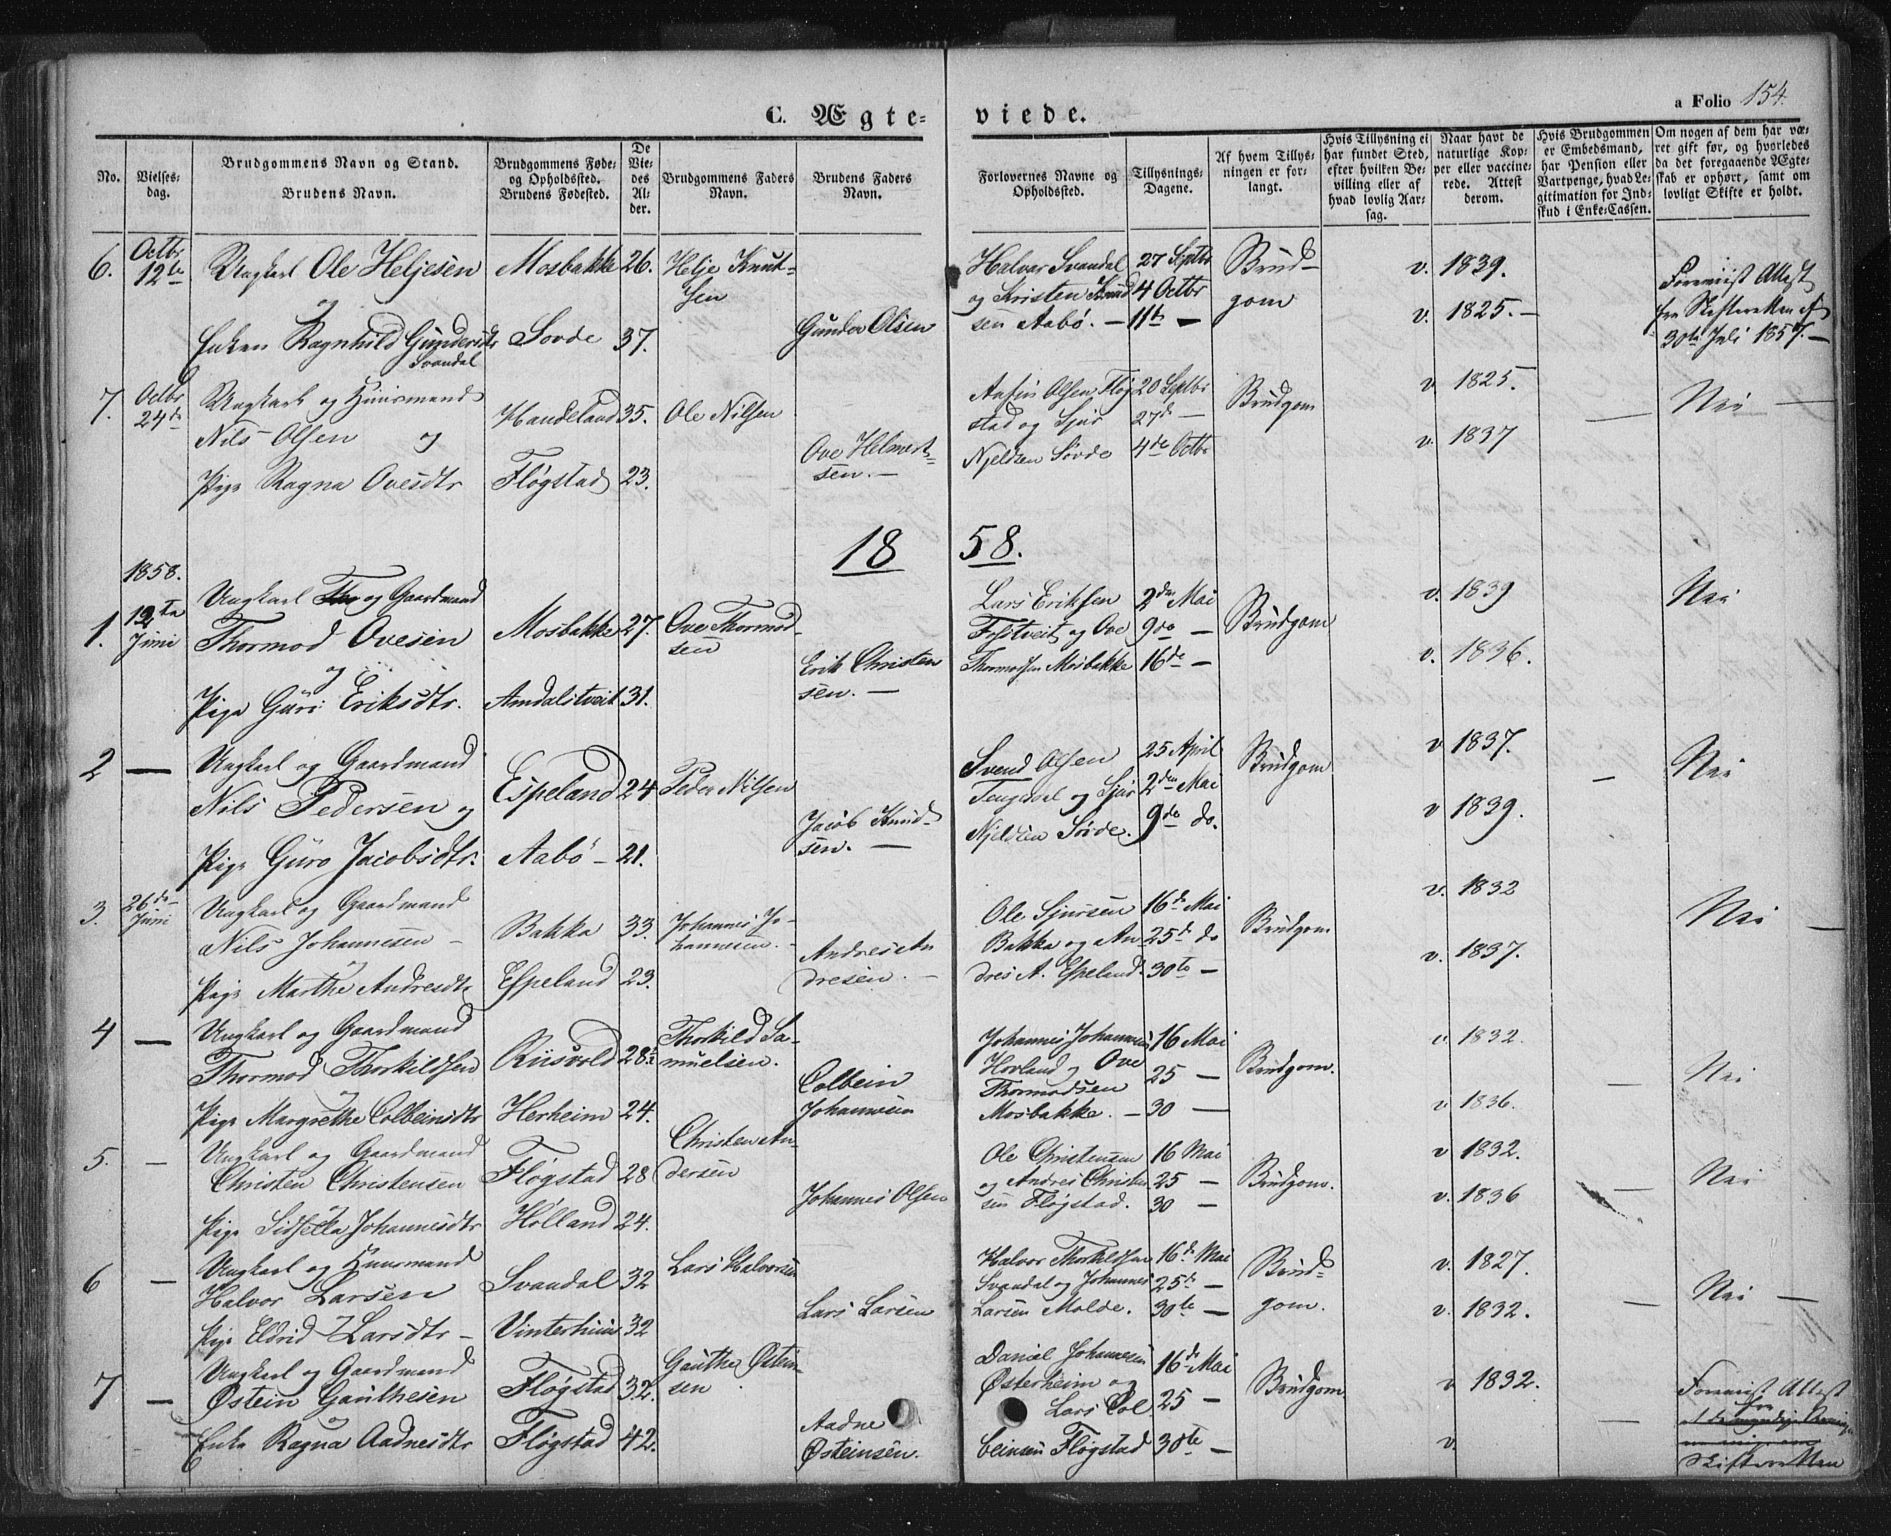 C. Ægte- viede.
a Folio 154.
No.
Vielses-
dag.
Brudgommens Navn og Stand.
Brudens Navn.
Brudgommens Føde-
og Opholdssted.
Brudens Fødested.
De
Vie-
des
Al-
der.
Brudgommens Faders
Navn.
Brudens Faders
Navn.
Forlovernes Navne og
Opholdssted.
Tillysnings-
Dagene.
Af hvem Tillys-
ningen er for-
langt.
Hvis Tillysning ei
har fundet Sted,
efter hvilken Be-
villing eller af
hvad lovlig Aar-
sag.
Naar havt de
naturlige Kop-
per eller vaccine-
rede. Attest
derom.
Hvis Brudgommen
er Embedsmand,
har Pension eller
Vartpenge, hvad Le-
gitimation for Ind-
skud i Enke-Cassen.
Om nogen af dem har væ-
ret gift før, og hvorledes
da det foregaaende Ægte-
skab er ophørt, samt om
lovligt Skifte er holdt.
6.
Octbr
12te
Ungkarl Ole Heljesen
og
Enken Ragnhild Gundersdtr
Svandal
Mosbakke 26.
Sovde 37.
Helje Knut-
sen
Gunder Olsen
Halvor Svandal
og Kristen Knud
sen Aabø.
27 Septbr
4 Octbr
11te —
Brud-
gom
v. 1839.
v. 1825. —
Foreviist Attest
fra Skifteretten af
30te Juli 1857. —
7.
Octbr
24de
Ungkarl og Huusmand
Nils Olsen og
Pige Ragna Ovesdtr
Handeland 35.
Fløgstad 23.
Ole Nilsen
Ove Helmert-
sen. —
Olsen Fløg
stad og Sjur
Njeldsen Søvde
20 Septbr
27de —
4de Octbr
Brudgom
v 1825.
v. 1837
— Nei —
18 58.
1858.
1.
12te
Juni
Ungkarl og Gaardmand
Thormod Ovesen
og
Pige Guri Eriksdtr.
Mosbakke 27.
Amdalstveit 31.
Ove Thormod-
sen
Erik Christen
sen. —
Lars Eriksen
og Ove
Thormodsen Mosbakke
2den Mai
9de —
16de —
Brudgom
v. 1839
v. 1836.
Nei
2 —
Ungkarl og Gaardmand
Nils Pedersen og
Pige Guro Jacobsdtr.
Espeland 24
Aabø — 21.
Peder Nilsen
Jacob Knud-
sen. —
Svend Olsen
Tengesdal og Sjur
Njeldsen Søvde.
25 April
2den Mai
9de do.
Brudgom
v 1837.
v 1839.
— Nei
3.
26de
Juni
Ungkarl og Gaardmand
Nils Johannesen —
og
Pige Marthe Andresdtr
Bakka 33.
Espeland 23.
Johannes Jo-
hannesen. —
Andres An
dresen. —
Ole Sjursen
Bakka og An-
dres A. Espeland.
16de Mai
25de do
30te —
Brudgom
v. 1832
v. 1837.
Nei —
4 —
Ungkarl og Gaardmand
Thormod Thorkildsen
og
Pige Margrethe Colbeinsdtr
Riisvold 28½
Herheim 24.
Thorkild Sa-
muelsen.
Colbein
Johannesen
Johannes Johannesen
Hovland og Ove
Thormodsen
Mosbakke. —
16 Mai
25 —
30 —
Brudgom.
v 1832.
v 1836.
— Nei
5. —
Ungkarl og Gaardmand
Christen Christensen
og
Pige Sidsella Johannesdtr
Fløgstad 28
Hølland 24.
Christen An-
dersen
Johannes Olsen
Ole Christensen
og Andres Christen
sen Fløgstad.
16 Mai
25 —
30 —
Brudgom.
v 1832.
v. 1836
— Nei
6 —
Ungkarl og Huusmand
Halvor Larsen
Pige Eldrid Larsdtr —
Svandal 32
Vinterhuus 32
Lars Halvorsen
Lars Larsen
Halvor Thorkildsen
Svandal og Johannes
Larsen Molde.
16de Mai
25de —
30te —
Brud-
gom.
v. 1827.
v. 1832.
— Nei —
7 —
Ungkarl og Gaardmand
Østein Gauthesen
og
Enke Ragna Aadnesdtr
Fløgstad 32.
Fløgstad 42.
Gauthe Østein-
sen
Aadne
Østeinsen.
Daniel Johannesen
Østerheim og
Lars Col
beinsen Fløgstad
16de Mai
25 —
30te —
Brudgom
v 1832.
v.
—
Foreviist Attest
fra
Skifteretten